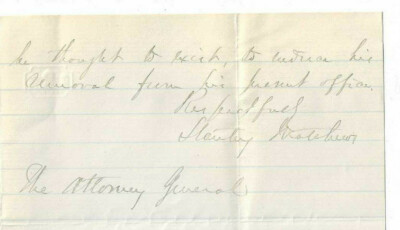 be thought to exist, to induce his
removal from his present office.
Respectfully
Stanley Matthews
The Attorney General